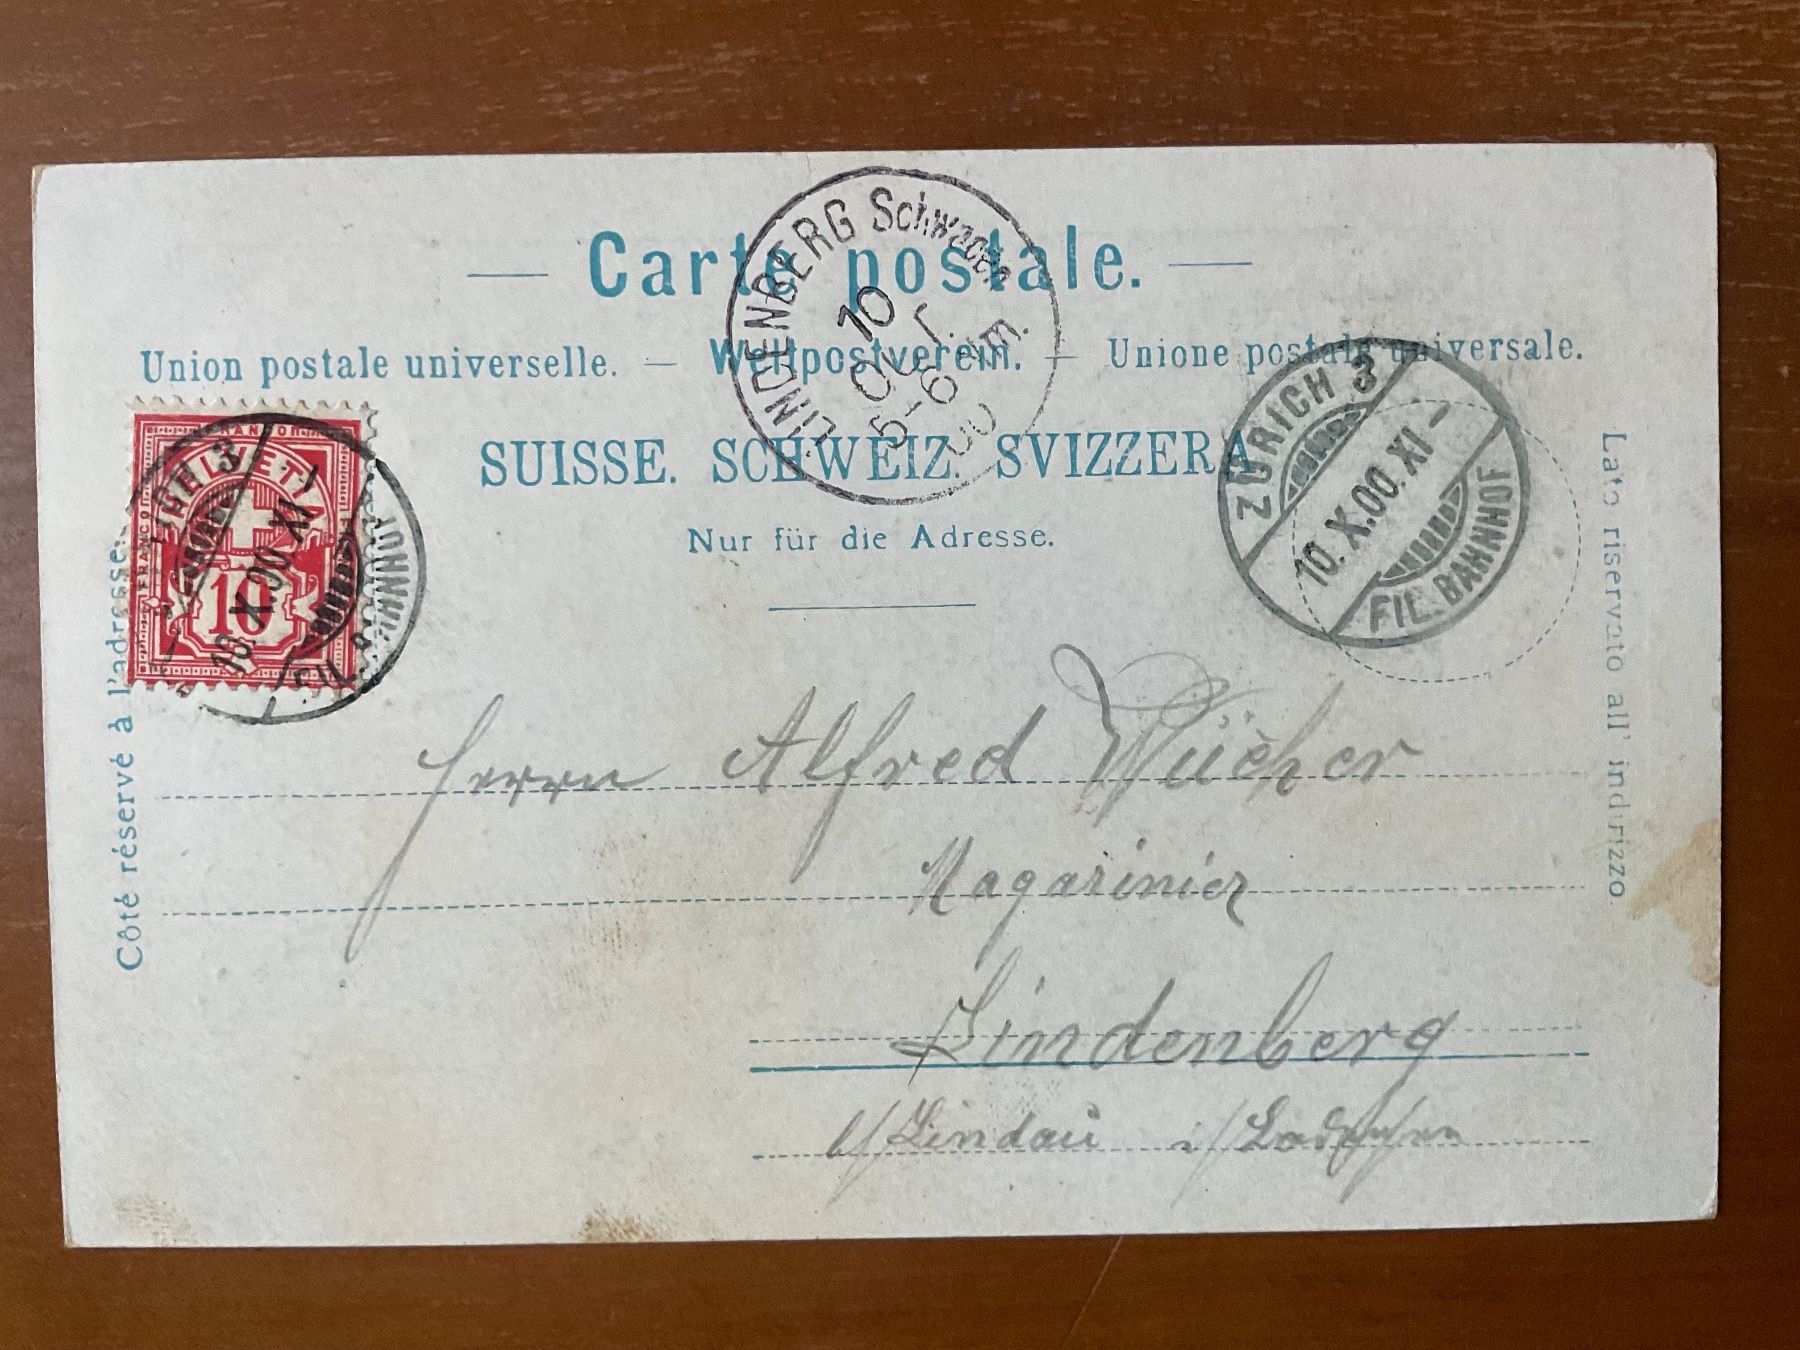 Carte postale.
Union postale universelle. — Weltpostverein. — Unione postale universale.
SUISSE. SCHWEIZ. SVIZZERA
Nur für die Adresse.
Côté réservé à l'adresse.
Lato riservato all' indirizzo.
LINDENBERG Schwaben
10
OKT.
5-6 Nm.
00
ZÜRICH 3
10.X.00.XI-
FIL. BAHNHOF
FRANCO
HELVETIA
10
10.X.00.XI-
Herrn Alfred Wücher
Magazinier
Lindenberg
b/Lindau i/